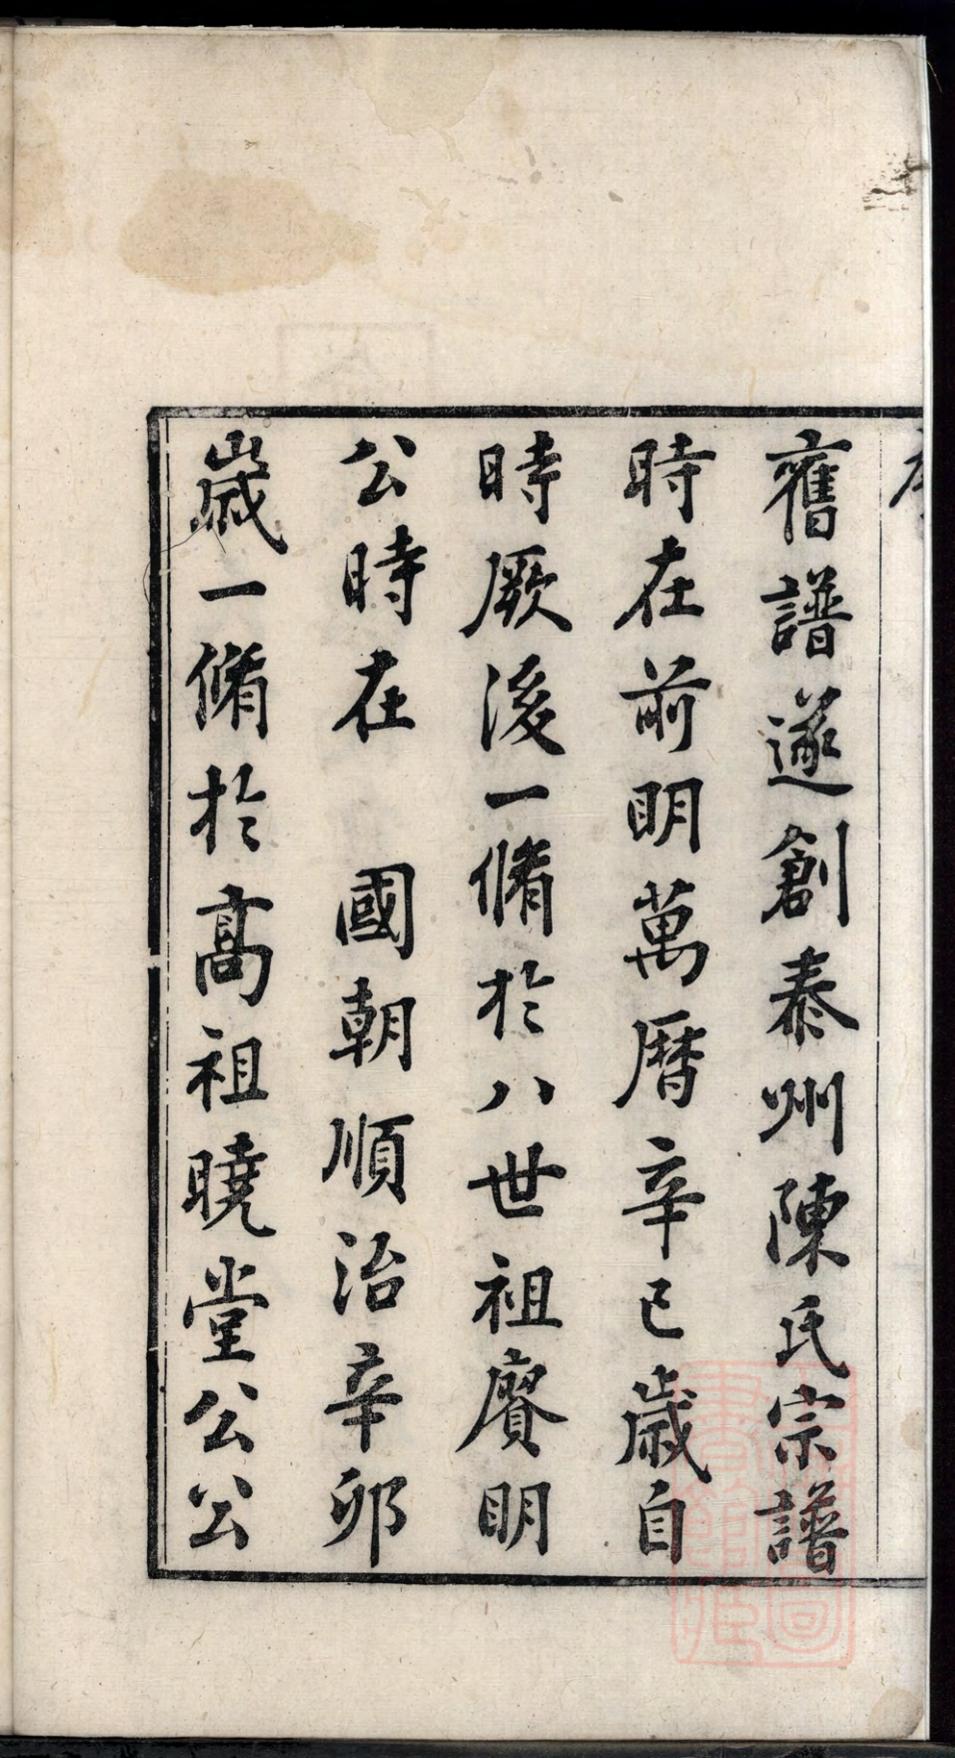 舊譜遂創泰州陳氏宗譜
時在前明萬曆辛巳歲自
時厥後一脩於八世祖賡明
公時在 國朝順治辛卯
歲一脩於高祖曉堂公公